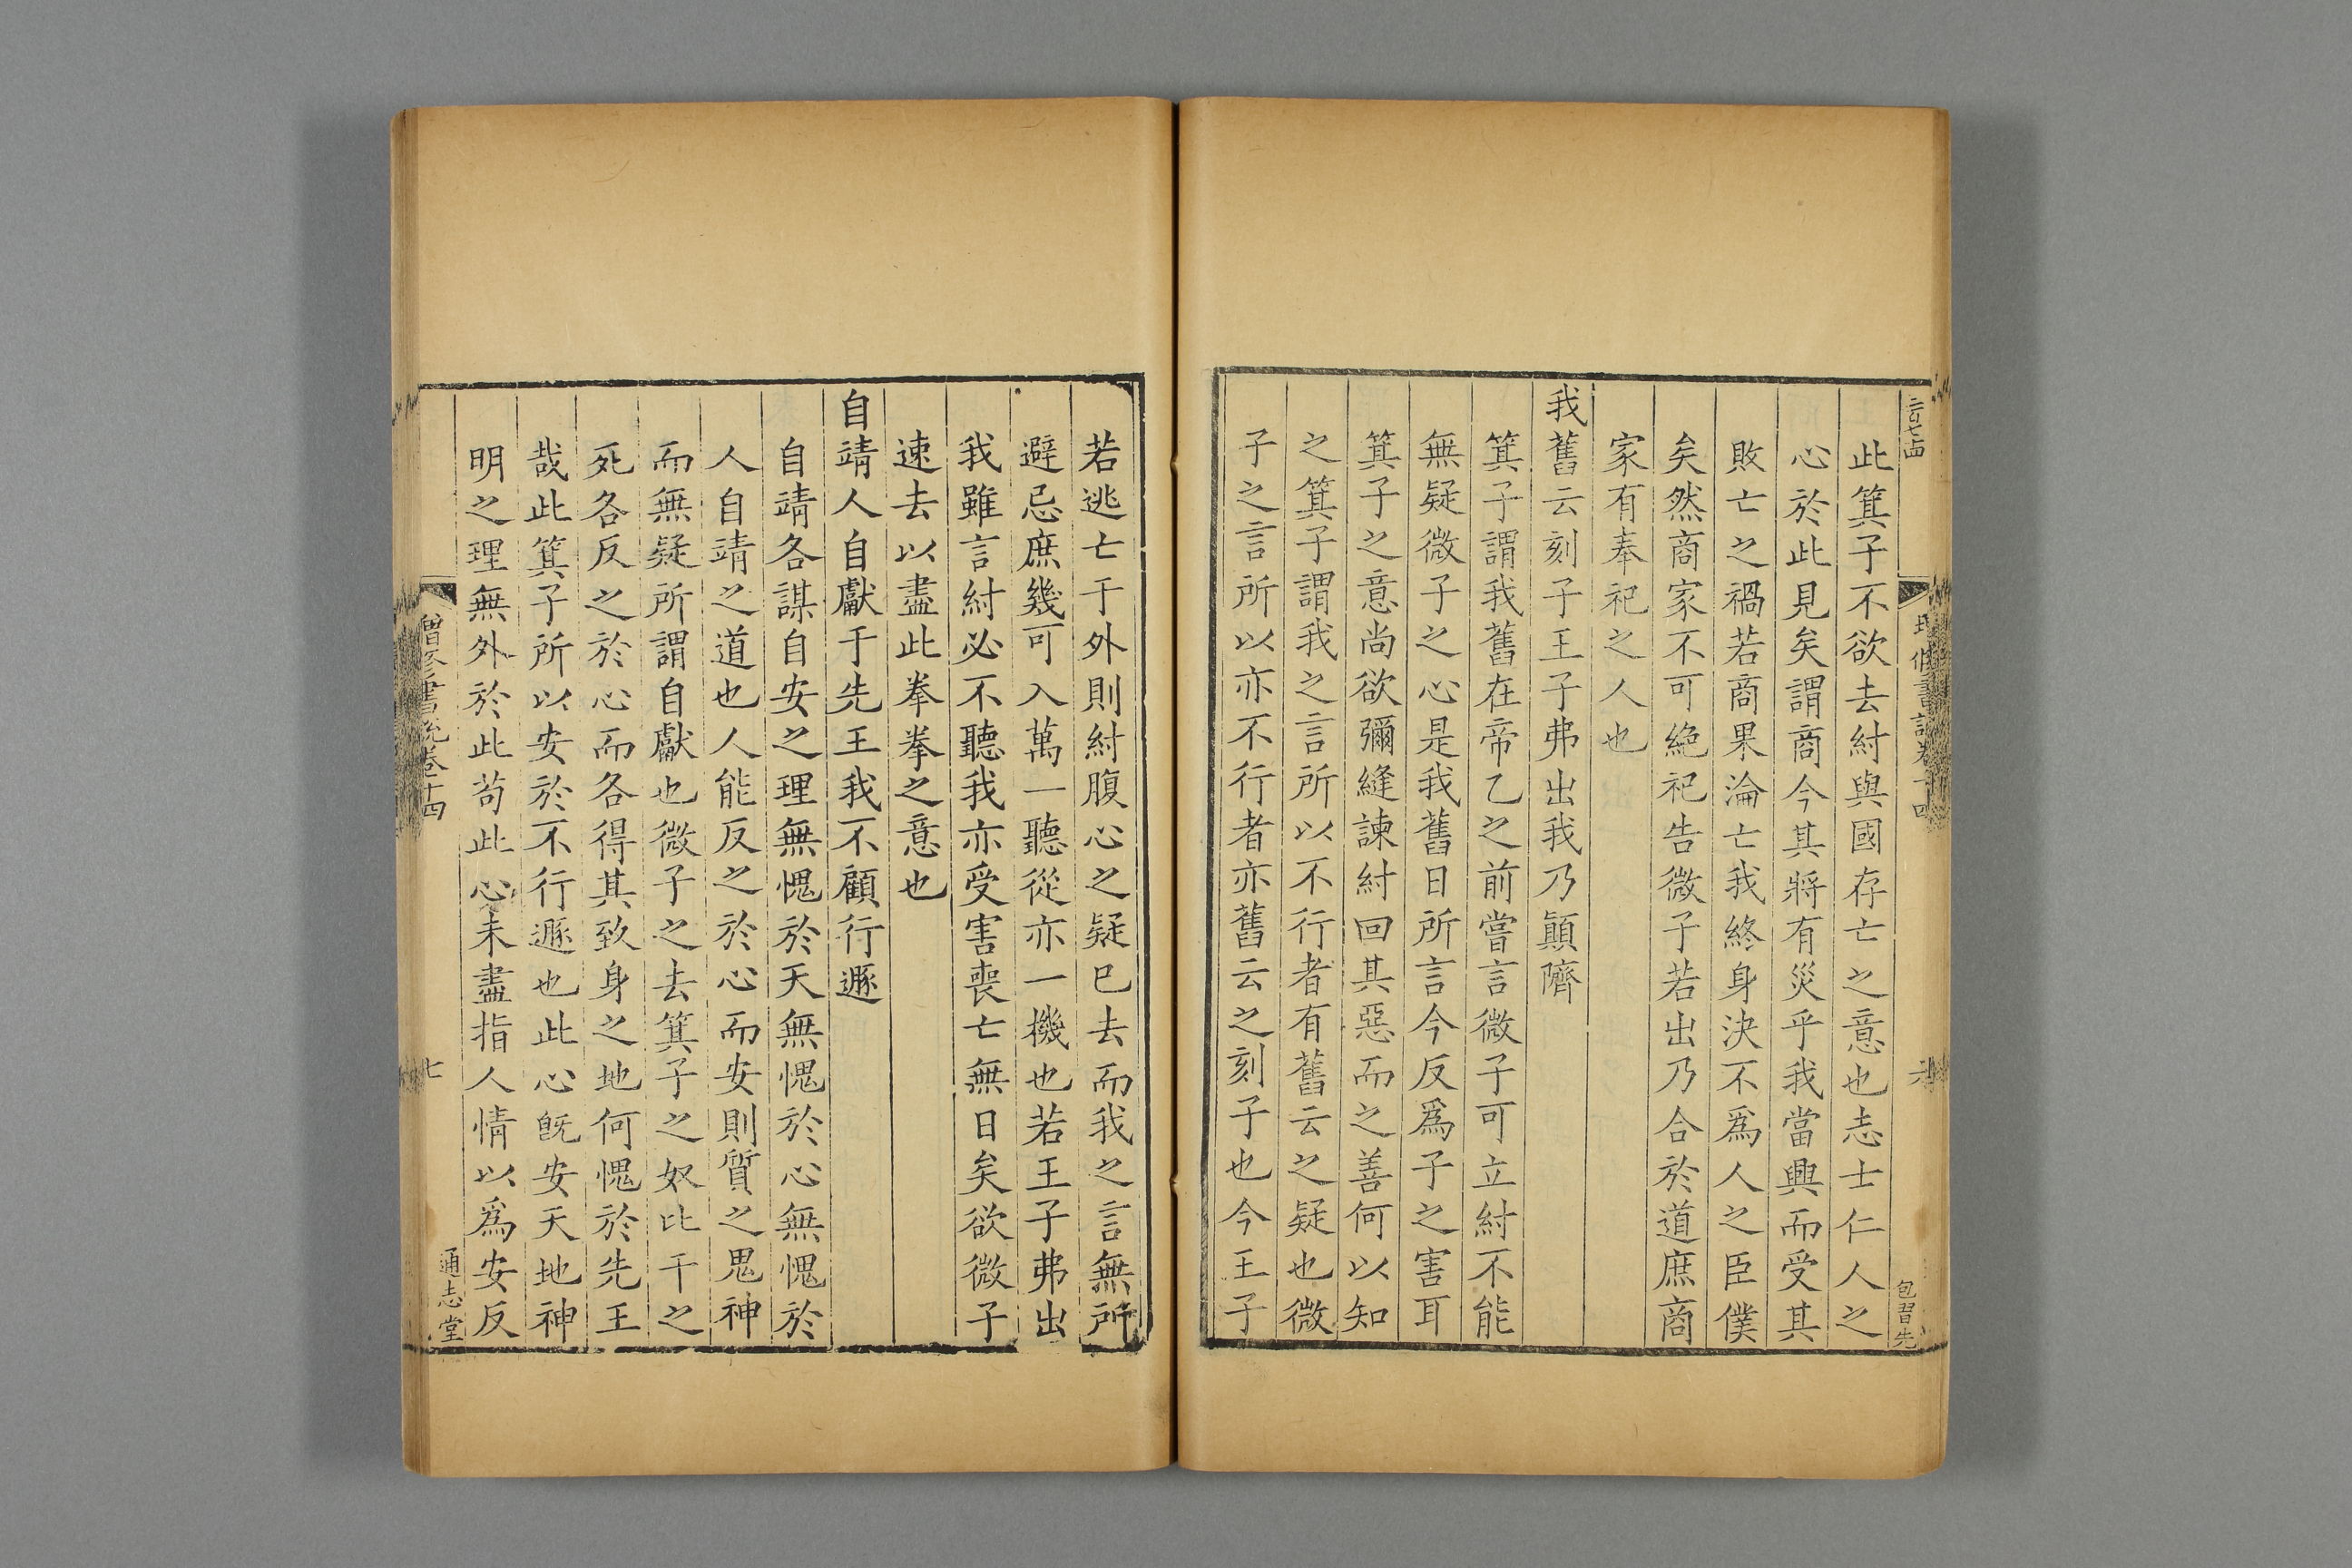 此箕子不欲去紂與國存亡之意也志士仁人之
心於此見矣謂商今其將有災乎我當興而受其
敗亡之禍若商果淪亡我終身決不爲人之臣僕
矣然商家不可絶祀告微子若出乃合於道庶商
家有奉祀之人也
我舊云刻子王子弗出我乃顚隮
箕子謂我舊在帝乙之前嘗言微子可立紂不能
無疑微子之心是我舊日所言今反爲子之害耳
箕子之意尚欲彌縫諫紂回其惡而之善何以知
之箕子謂我之言所以不行者有舊云之疑也微
子之言所以亦不行者亦舊云之刻子也今王子
包習先
若逃亡于外則紂腹心之疑已去而我之言無所
避忌庶幾可入萬一聽從亦一機也若王子弗出
我雖言紂必不聽我亦受害喪亡無日矣欲微子
速去以盡此拳拳之意也
自靖人自獻于先王我不顧行遯
自靖各謀自安之理無愧於天無愧於心無愧於
人自靖之道也人能反之於心而安則質之鬼神
而無疑所謂自獻也微子之去箕子之奴比干之
死各反之於心而各得其致身之地何愧於先王
哉此箕子所以安於不行遯也此心旣安天地神
明之理無外於此苟此心未盡指人情以爲安反
增修書說卷十四
七
通志堂